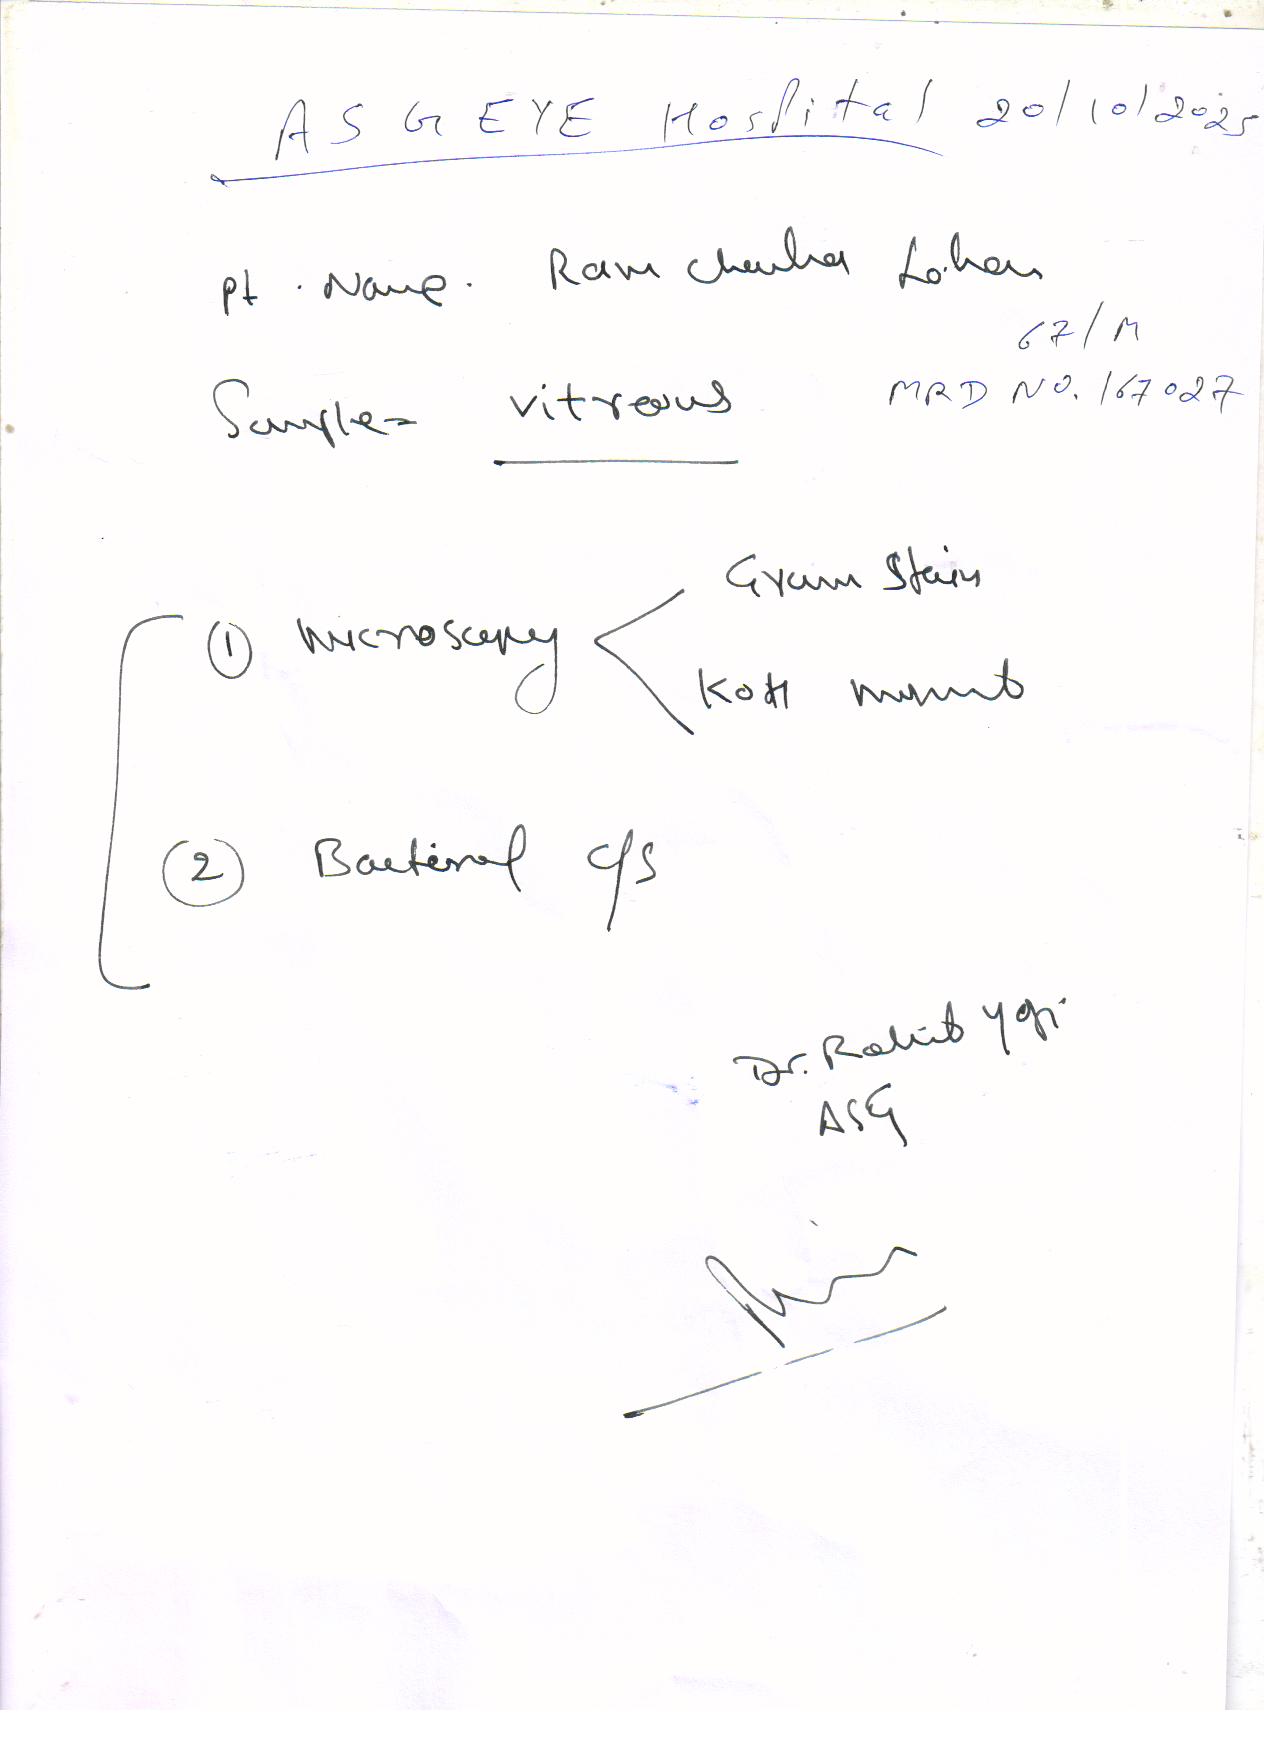 ASG EYE Hospital 20/10/2025
Pt. Name. Ram Chandra Lohar
67/M
Sample = vitreous
MRD NO. 167027
① Microscopy < Gram Stain
KOH mount
② Bacterial c/s
Dr. Rohit Yogi
ASG